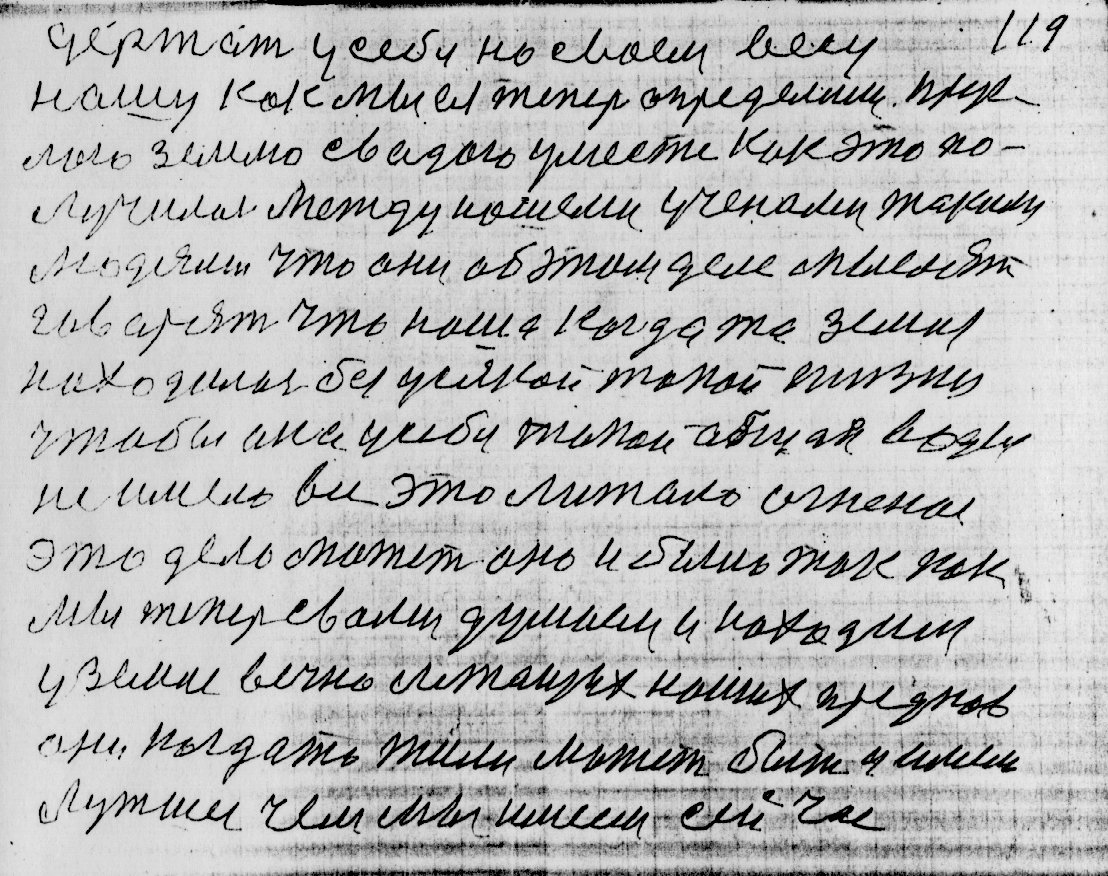 держат у себя на своем весу 119
нашу как мы ея тепер определили круг-
лою землю свадою уместе как это по-
лучилась между нашеми учеными такими
людями что они об этом деле мыслят
гаварят что наша когдата земля
находилась без усякой такой жизни
чтобы она у себя такой общая воды
не имела вы это литало огненое
это дело может оно и было так как
мы тепер свами думаем и находим
у земле вечно летающих наших предков
они когдато жили может быт и имели
лутшее чем мы имеем сей час